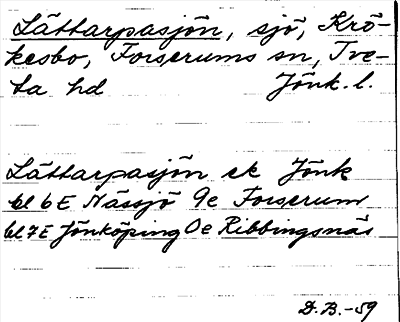 Lättarpasjön, sjö, Krö-
kesbo, Forserums sn, Tve-
ta hd Jönk. l.
Lättarpasjön ek Jönk
bl 6E Nässjö 9e Forserum
bl 7E Jönköping 0e Ribbingsnäs
D.B.-59